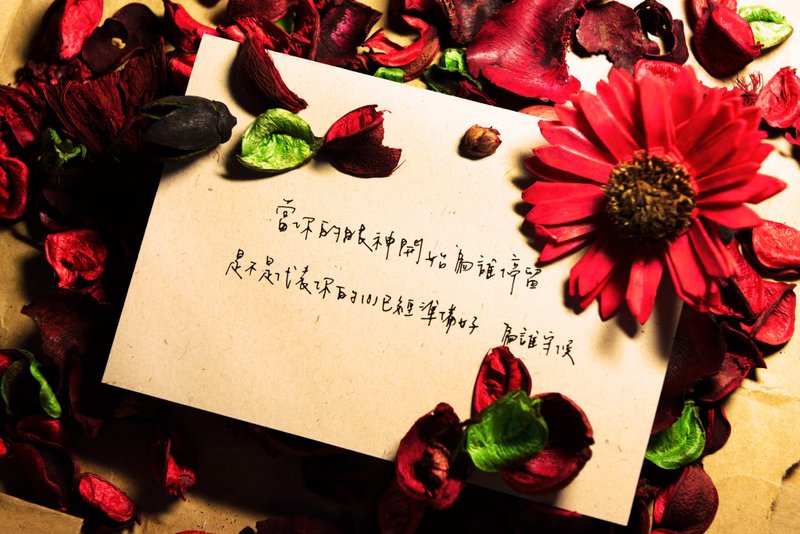 當你的眼神開始為誰停留
是不是代表你的心已經準備好 為誰守候